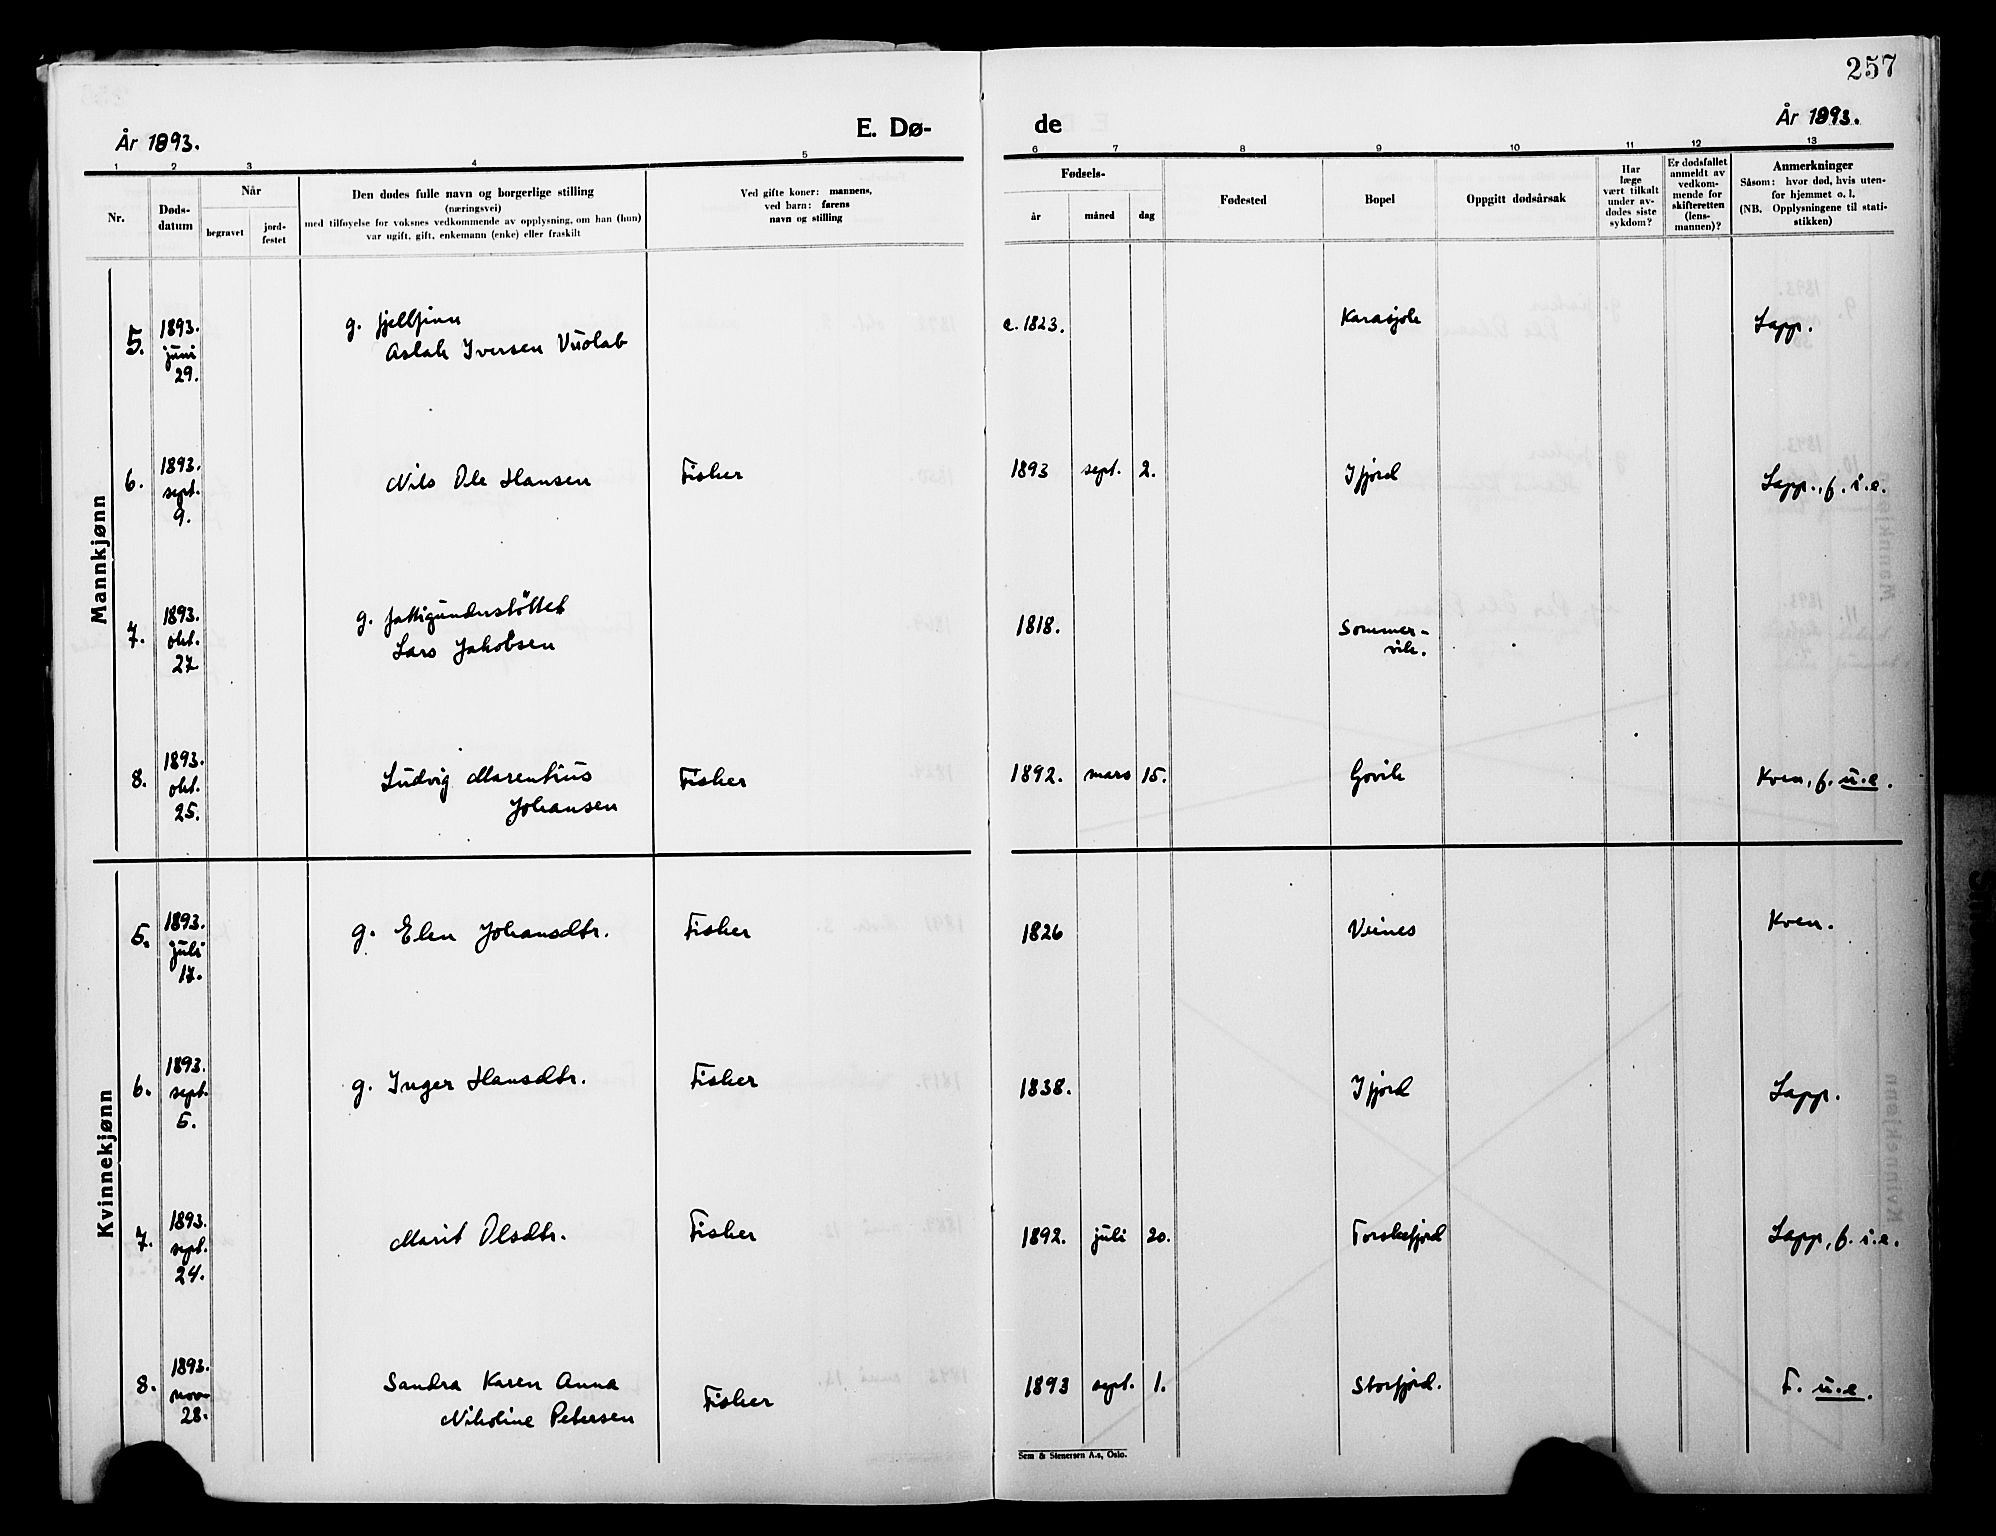 257
År 1893.
E. Dø-
de
År 1893.
1 2 3 4 5 6 7 8 9 10 11 12 13
Nr.
Døds-
datum
Når
begravet
jord-
festet
Den dødes fulle navn og borgerlige stilling
(næringsvei)
med tilføyelse for voksnes vedkommende av opplysning, om han (hun)
var ugift, gift, enkemann (enke) eller fraskilt
Ved gifte koner: mannens,
ved barn: farens
navn og stilling
Fødsels-
år
måned
dag
Fødested
Bopel
Opgitt dødsårsak
Har
læge
vært tilkalt
under av-
dødes siste
sykdom?
Er dødsfallet
anmeldt av
vedkom-
mende for
skifteretten
(lens-
mannen)?
Anmerkninger
Såsom: hvor død, hvis uten-
for hjemmet o. l.
(NB. Opplysningene til stati-
stikken)
Mannkjønn
5. 1893. juni 29. g. fjellfinn c. 1823. Karasjok Lapp.
Aslak Iversen Vuolab
6. 1893. sept. 9. Nils Ole Hansen Fisker 1893 sept. 2. Ifjord Lapp., f. i.e.
7. 1893. okt. 27 g. fattigunderstöttet 1818. Sommer-
Lars Jakobsen vik.
8. 1893. okt. 25. Ludvig Marentius Fisker 1892. mars 15. Govik Kven, f. u.e.
Johansen
Kvinnekjønn
5. 1893. juli 17. g. Elen Johansdtr. Fisker 1826 Veines Kven.
6. 1893. sept. 5. g. Inger Hansdtr. Fisker 1838. Ifjord Lapp.
7. 1893. sept. 24. Marit Olsdtr. Fisker 1892. juli 20. Torskefjord Lapp, f. i.e.
8. 1893. nov. 28. Sandra Karen Anna Fisker 1893 sept. 1. Storfjord. F. u.e.
Nikoline Petersen
Sem & Stenersen A.s, Oslo.